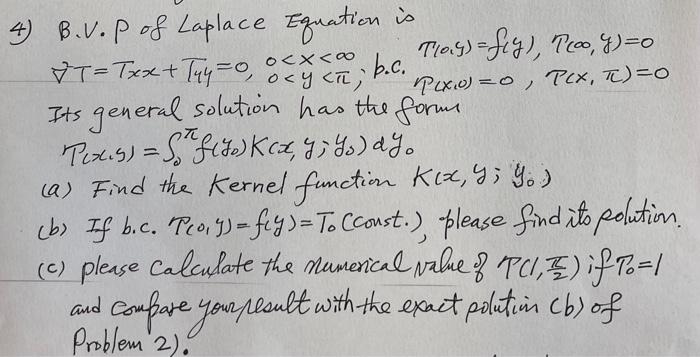 4) B.V.P of Laplace Equation is
∇²T = Txx + Tyy = 0, 0<x<∞ 0<y<π ; b.c. T(0,y)=f(y), T(∞,y)=0
T(x,0)=0, T(x,π)=0
Its general solution has the form
T(x,y) = ∫₀^π f(y₀) K(x, y; y₀) dy₀
(a) Find the Kernel function K(x, y; y₀)
(b) If b.c. T(0,y)=f(y)=T₀ (const.), please find its solution.
(c) please Calculate the numerical value of T(1, π/2) if T₀=1
and compare your result with the exact solution (b) of
Problem 2).